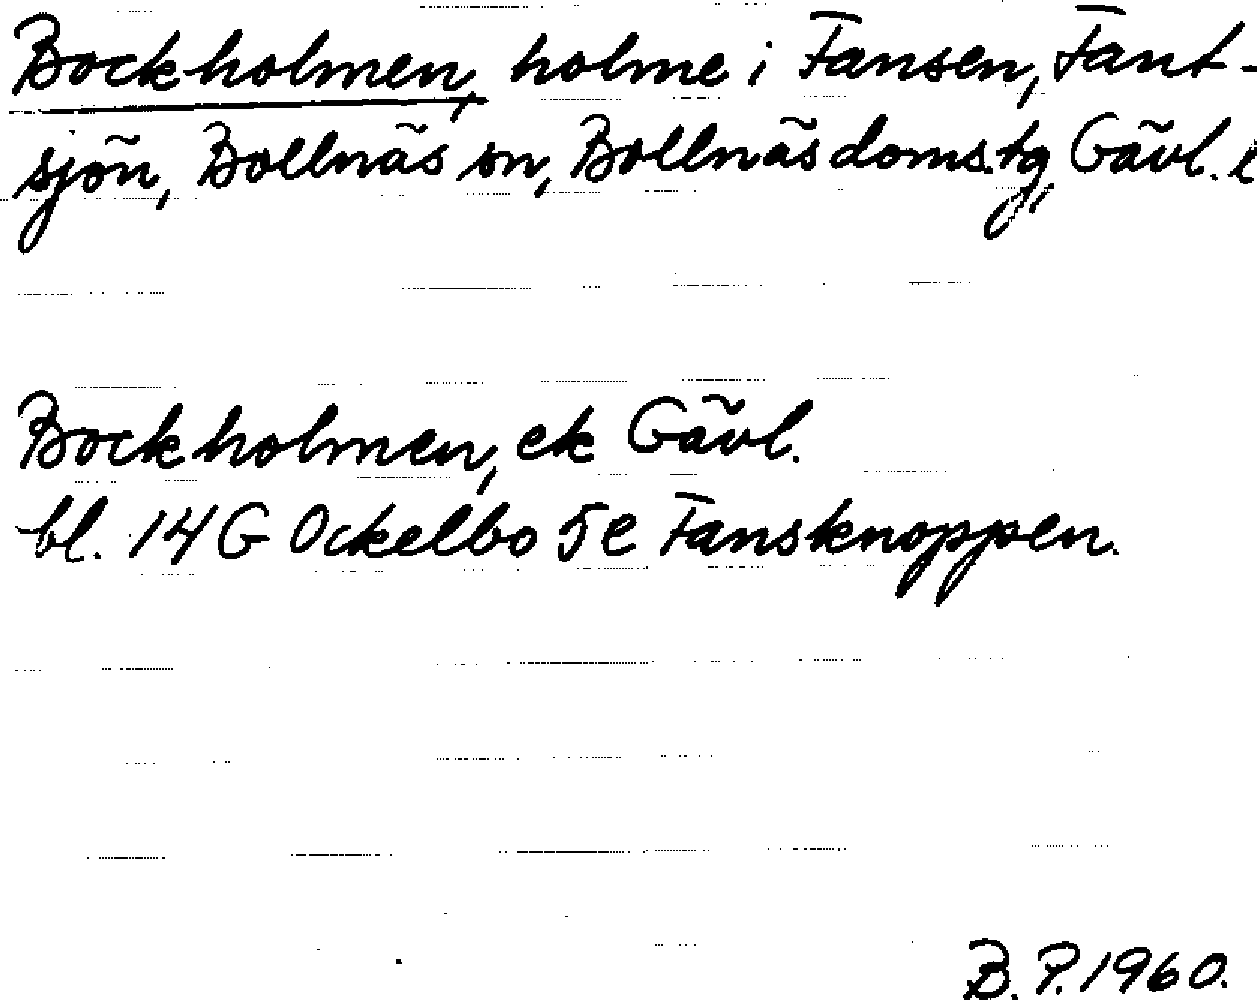 Bockholmen, holme i Fansen, Fant-
sjön, Bollnäs sn, Bollnäs doms.tg, Gävl. l
Bockholmen, ek Gävl.
bl. 14 G Ockelbo 5 e Fansknoppen.
B. P. 1960.